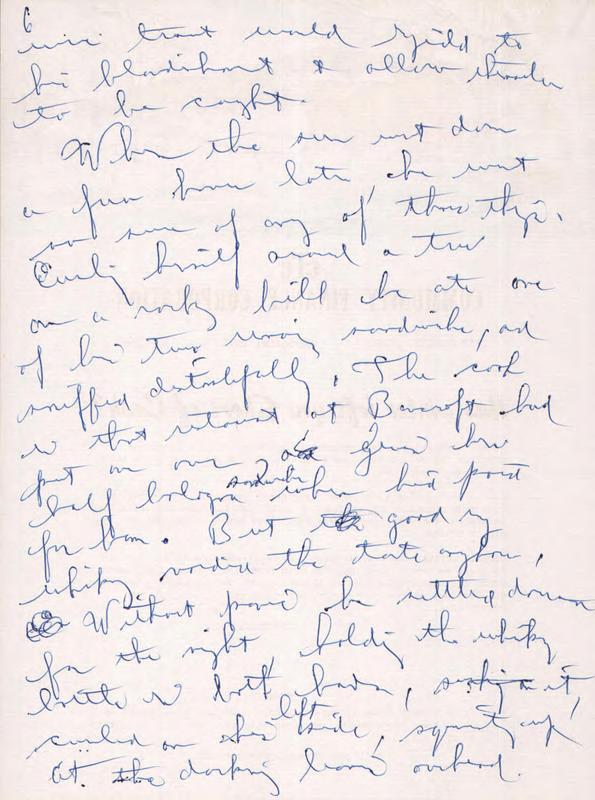 6
trout would yield to
his blandishment & allow themselves
to be caught.
When the sun went down
a few hours later, he went
not sure of any of those things.
Curling himself around a tree
on a rocky hill he ate one
of his two remaining sandwiches, and
sniffed distastefully. The cook
in that restaurant at Bancroft had
put one over, given him
half bologna sandwiches when he'd paid
for ham. But good rye
whisky the taste anyhow.
Without he settled down
for the night, holding the whisky
bottle in both hands, it,
curled on his left side, squinting up
at the darkening leaves overhead.